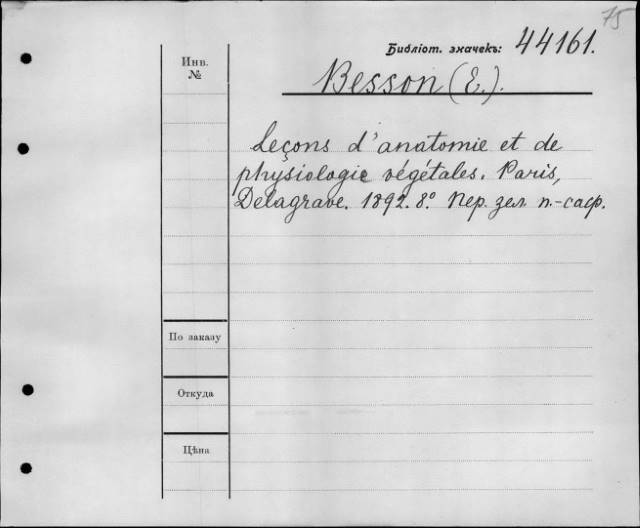 75
Библіот. значекъ: 44161.
Инв.
№
Besson (E.).
Leçons d'anatomie et de
physiologie végétales. Paris,
Delagrave. 1892. 8º Пер. зел. п.-саф.
По заказу
Откуда
Цѣна